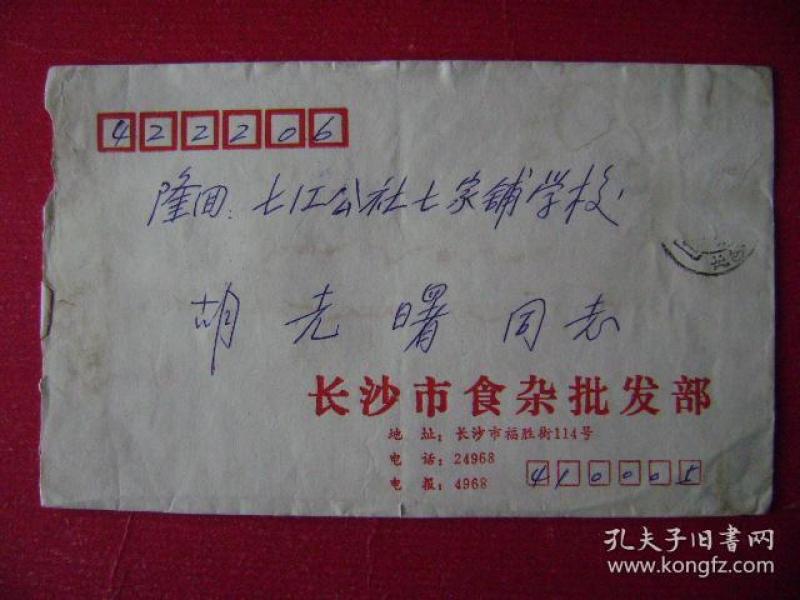 422206
隆回：七江公社七家铺学校
胡光曙同志
长沙市食杂批发部
地 址：长沙市福胜街114号
电 话：24968
电 报：4968
410005
孔夫子旧书网
www.kongfz.com